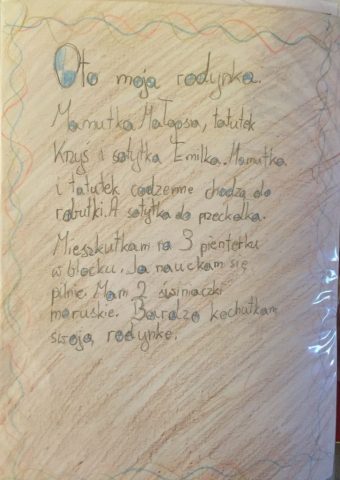 Oto moja rodynka.
Mamutka Małgosia, tatutek
Krzyś i sotytka Emilka. Mamutka
i tatutek codzennie chodzą do
robutki. A sotytka do przeckolka.
Mieszkutkam na 3 pienterku
w blocku. Ja nauckam się
pilnie. Mam 2 świniaczki
moruskie. Bardzo kochutkam
swoją rodynkę.